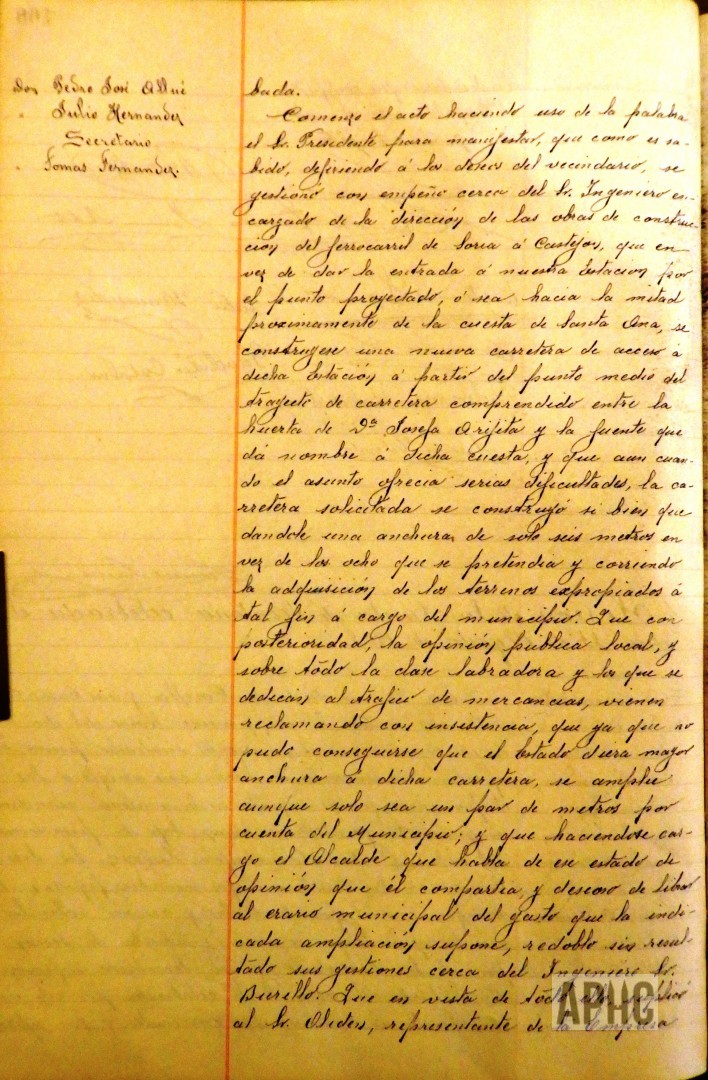 Don Pedro José Allué
" Julio Hernandez
Secretario
" Tomas Fernandez.
bada.
Comenzó el acto haciendo uso de la palabra
el Sr. Presidente para manifestar, que como es sa-
bido, defiriendo á los deseos del vecindario, se
gestionó con empeño cerca del Sr. Ingeniero en-
cargado de la dirección de las obras de construc-
ción del ferrocarril de Soria á Castejon, que en
vez de dar la entrada á nuestra Estacion por
el punto proyectado, ó sea hacia la mitad
proximamente de la cuesta de Santa Ana, se
construyese una nueva carretera de acceso á
dicha Estación á partir del punto medio del
trayecto de carretera comprendido entre la
huerta de Dª Josefa Arifita y la fuente que
dá nombre á dicha cuesta, y que aun cuan-
do el asunto ofrecia serias dificultades, la ca-
rretera solicitada se construyó si bien que
dandole una anchura de solo seis metros en
vez de los ocho que se pretendia y corriendo
la adquisición de los terrenos expropiados á
tal fin á cargo del municipio. Que con
posterioridad, la opinión publica local, y
sobre todo la clase labradora y los que se
dedican al trafico de mercancias, vienen
reclamando con insistencia, que ya que no
pudo conseguirse que el Estado diera mayor
anchura á dicha carretera, se amplie
aunque solo sea un par de metros por
cuenta del Municipio; y que haciendose car-
go el Alcalde que habla de ese estado de
opinión que él compartia y deseoso de librar
al erario municipal del gasto que la indi-
cada ampliación supone, redobló sin resul-
tado sus gestiones cerca del Ingeniero Sr.
Burillo. Que en vista de todo ello suplicó
al Sr. Oliden, representante de la Empresa
APHC